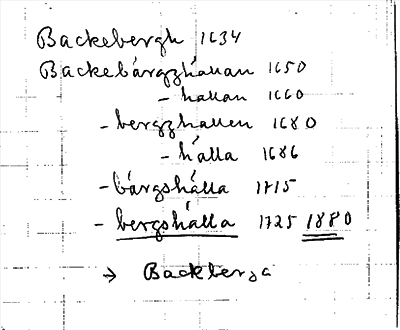 Backebergh 1634
Backebärgzhällan 1650
- hällan 1660
- bergzhallen 1680
- hälla 1686
- bärgshälla 1715
- bergshälla 1725 1880
→ Backberga